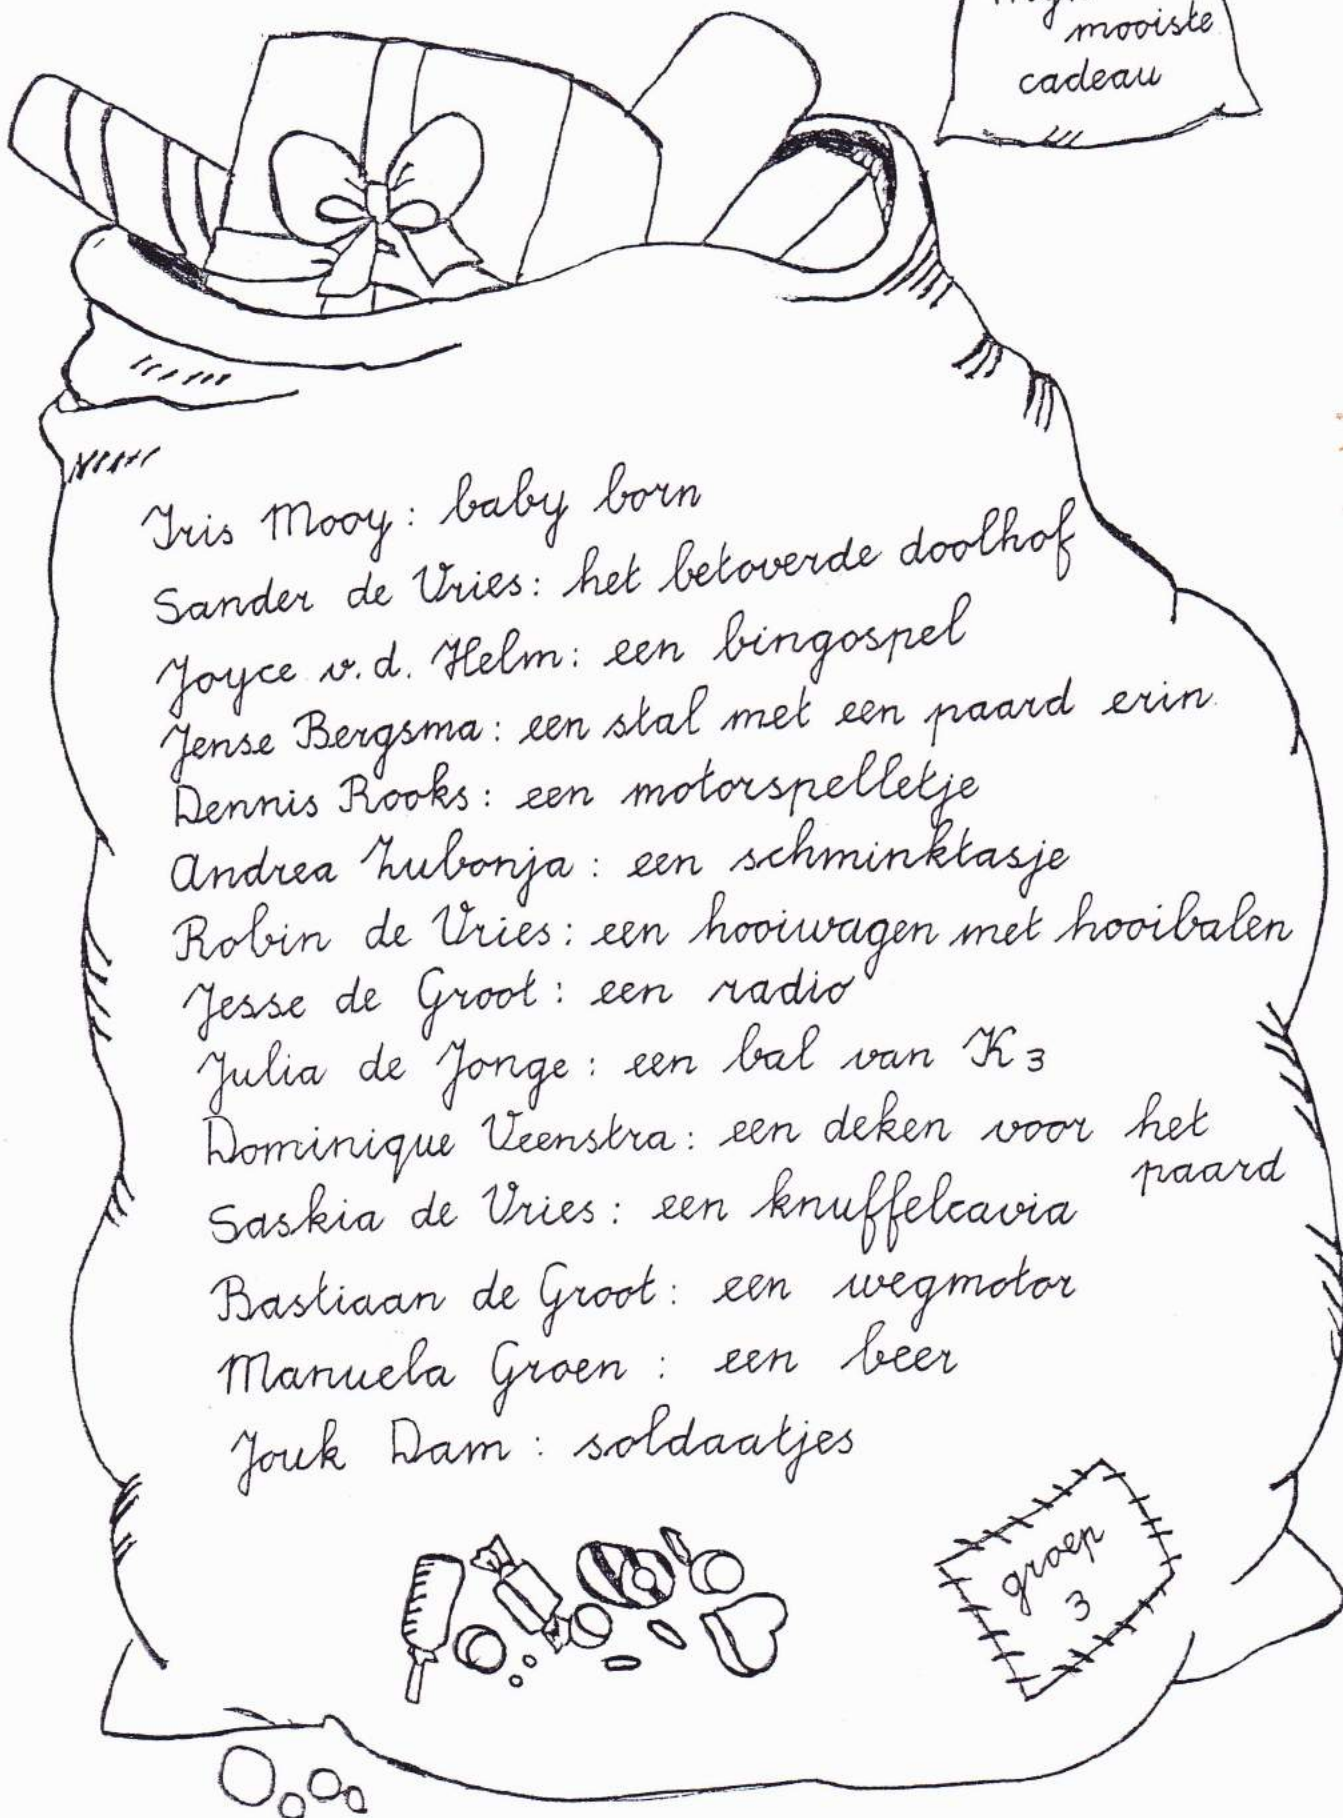 mooiste
cadeau
Iris Mooy: baby born
Sander de Vries: het betoverde doolhof
Joyce v.d. Helm: een bingospel
Jense Bergsma: een stal met een paard erin.
Dennis Rooks: een motorspelletje
Andrea Zubonja: een schminktasje
Robin de Vries: een hooiwagen met hooibalen
Jesse de Groot: een radio
Julia de Jonge: een bal van K3
Dominique Veenstra: een deken voor het
paard
Saskia de Vries: een knuffelcavia
Bastiaan de Groot: een wegmotor
Manuela Groen: een beer
Jouk Dam: soldaatjes
groep
3